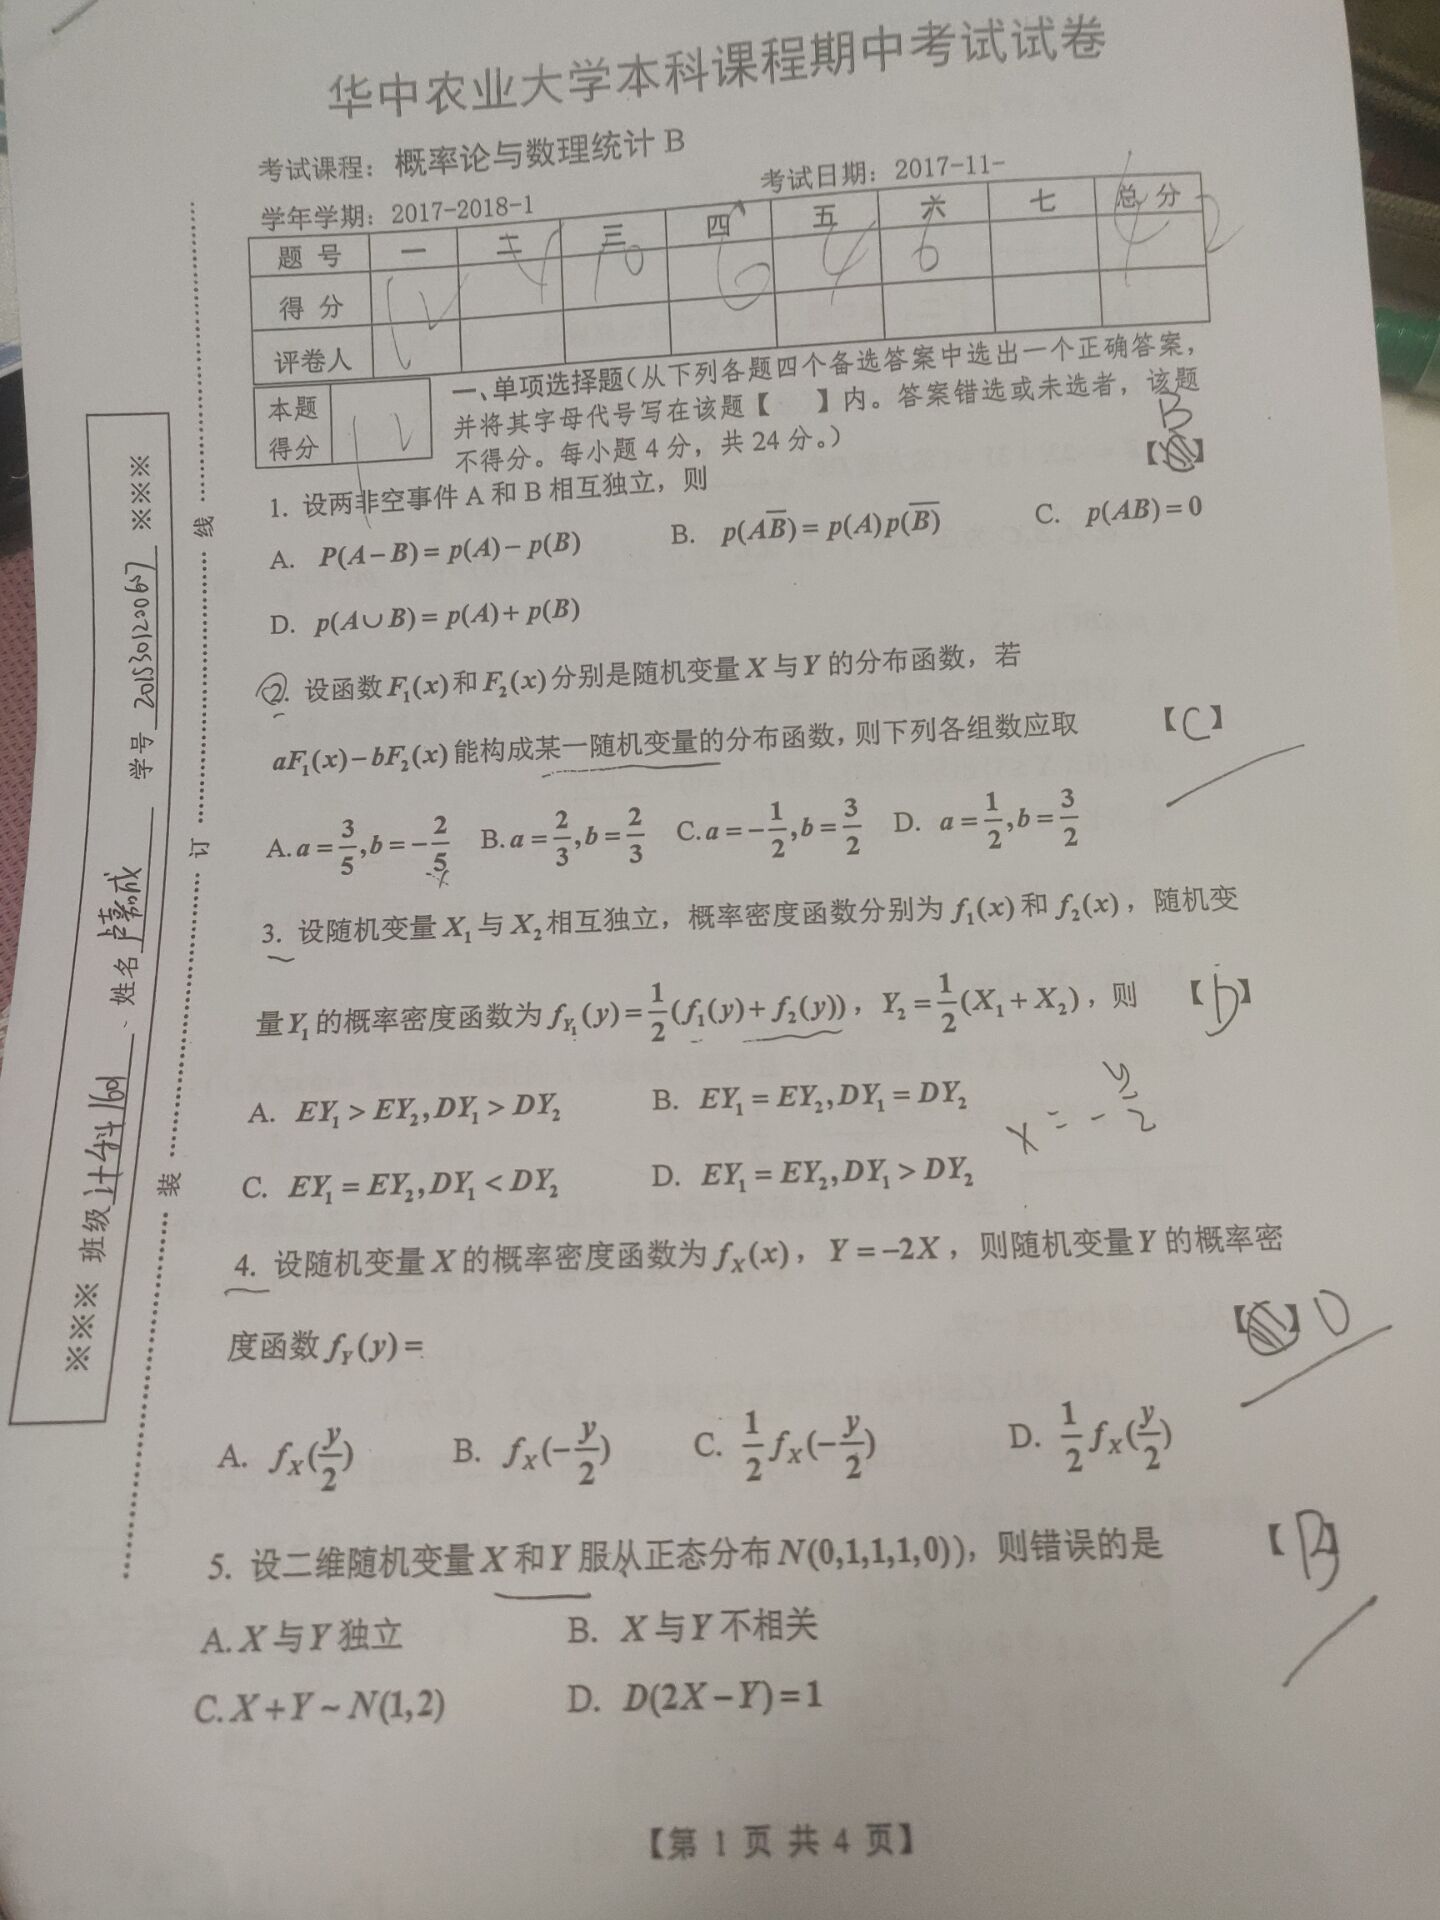 华中农业大学本科课程期中考试试卷
考试课程：概率论与数理统计 B
考试日期：2017-11-
学年学期：2017-2018-1
题 号 一 二 三 四 五 六 七 总 分
得 分 12 4 10 6 4 6 42
评卷人
本题得分 12
一、单项选择题（从下列各题四个备选答案中选出一个正确答案，
并将其字母代号写在该题【 】内。答案错选或未选者，该题
不得分。每小题 4 分，共 24 分。）
1. 设两非空事件 A 和 B 相互独立，则 【 】 B
A. P(A−B)= p(A)− p(B) B. p(AB̅)= p(A)p(B̅) C. p(AB)=0
D. p(A∪B)= p(A)+ p(B)
2. 设函数 F₁(x)和 F₂(x)分别是随机变量 X 与 Y 的分布函数，若
aF₁(x)−bF₂(x)能构成某一随机变量的分布函数，则下列各组数应取 【C】
A. a=3/5, b=−2/5 B. a=2/3, b=2/3 C. a=−1/2, b=3/2 D. a=1/2, b=3/2
3. 设随机变量 X₁ 与 X₂ 相互独立，概率密度函数分别为 f₁(x)和 f₂(x)，随机变
量 Y₁ 的概率密度函数为 f_Y₁(y)=1/2(f₁(y)+ f₂(y))，Y₂=1/2(X₁+X₂)，则 【D】
A. EY₁>EY₂,DY₁>DY₂ B. EY₁=EY₂,DY₁=DY₂
x = -y/2
C. EY₁=EY₂,DY₁<DY₂ D. EY₁=EY₂,DY₁>DY₂
4. 设随机变量 X 的概率密度函数为 f_X(x)，Y=−2X，则随机变量 Y 的概率密
度函数 f_Y(y)= 【 】 D
A. f_X(y/2) B. f_X(−y/2) C. 1/2 f_X(−y/2) D. 1/2 f_X(y/2)
5. 设二维随机变量 X 和 Y 服从正态分布 N(0,1,1,1,0))，则错误的是 【A】
A. X 与 Y 独立 B. X 与 Y 不相关
C. X+Y~N(1,2) D. D(2X−Y)=1
【第 1 页 共 4 页】
※※※ 班级 计科1601 、姓名 卢嘉成 学号 2015301200657 ※※※
装 订 线